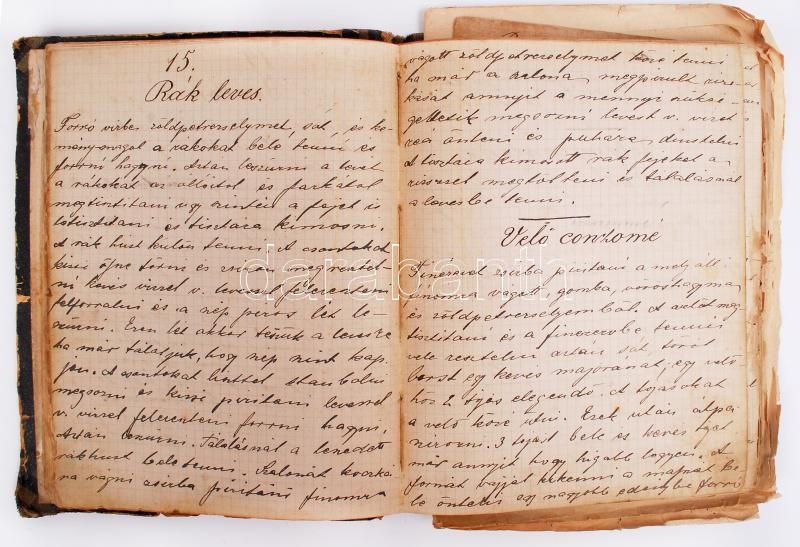 15.
Rák leves.
Forró vizbe zöldpetrezselymet, sót, és kö-
ménymagot a rákokat bele tenni és
forrni hagyni. Aztán leszürni a levet
a rákokat az ollóitól és farkától
megtisztitani ugy szintén a fejét is
kitisztitani és tisztára kimosni.
A rák hust külön tenni. A csontokat
össze törni és zsirban
ni kevés vizzel v. levessel felereszteni
felforralni és a szép piros lét le-
szürni. Ezen lét akkor teszük a levesbe
ha már tálaljuk, hogy szép szint kap-
jon. A csontokat
megsózni és kissé piritani levessel
v. vizzel felereszteni forrni hagyni,
Aztán leszürni. Tálalásnál a leszedett
rákhust beletenni. Szalonát koczká
ra vágni zsirba piritani finomra
vágott zöldpetrezselymet közé tenni
ha már a szalona megpirult rizs-
kását annyit a mennyi szüksé-
geltetik megsózni levest v. vizet
reá önteni és puhára dinsztelni
A tisztára kimosott rák fejeket a
rizszsel megtölteni és tálalásnál
a levesbe tenni.
Velő conzomé
zsirba piritani
finomra vágott gomba, vöröshagyma
és zöldpetrezselyemből. A velőt meg-
tisztitani és a tenni
vele aztán sót, törött
borst egy kevés majoránát; egy velő
höz 2 tojás elegendő. A tojásokat
a velő közé ütni. Ezek után
3 tojást bele és kevés tejet
már annyit hogy higabb legyen. A
formát vajjal kikenni a masszát be-
le önteni egy nagyobb edénybe forró
darabanth